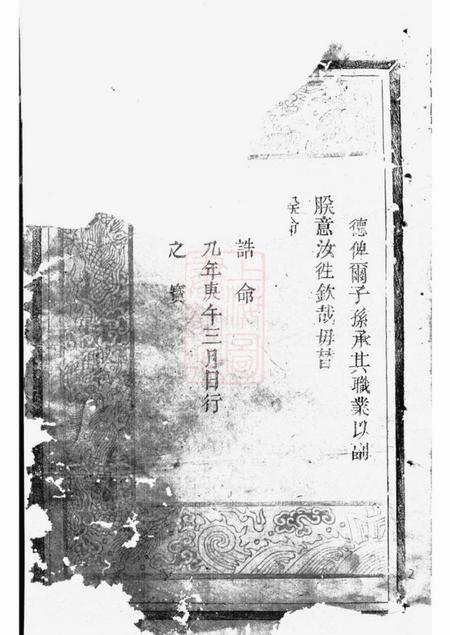 德俾爾子孫承其職業以副
朕意汝往欽哉毋替
誥命
九年庚午三月日行
之寶